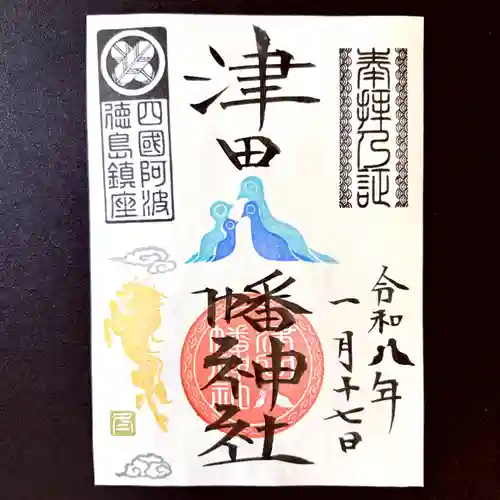 奉拝之証
津田
八幡神社
令和八年
一月十七日
四國阿波
徳島鎮座